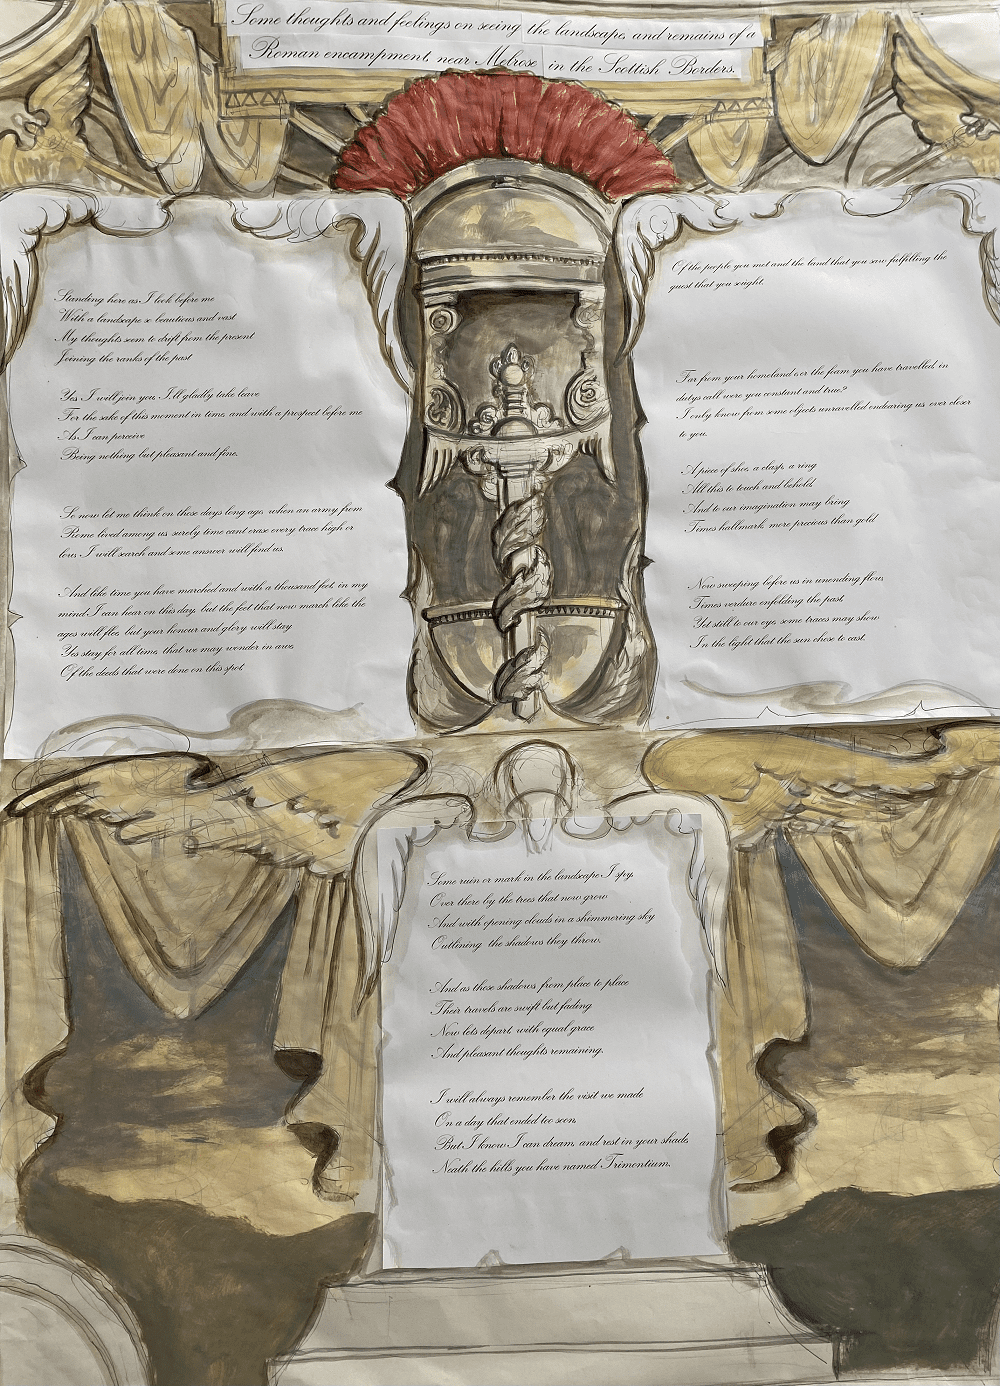 Some thoughts and feelings on seeing the landscape, and remains of a
Roman encampment, near Melrose in the Scottish Borders.
Standing here as I look before me
With a landscape so beautious and vast
My thoughts seem to drift from the present
Joining the ranks of the past
Yes I will join you, I'll gladly take leave
For the sake of this moment in time, and with a prospect before me
As I can perceive
Being nothing but pleasant and fine.
So now let me think on those days long ago, when an army from
Rome lived among us, surely time cant erase every trace, high or
low, I will search and some answer will find us.
And like time you have marched and with a thousand feet, in my
mind, I can hear on this day, but the feet that now march like the
ages will flee, but your honour and glory will stay
Yes stay for all time, that we may wonder in awe,
Of the deeds that were done on this spot,
Of the people you met and the land that you saw, fulfilling the
quest that you sought.
Far from your homeland o,er the foam you have travelled, in
dutys call were you constant and true?
I only know from some objects unravelled endearing us ever closer
to you.
A piece of shoe, a clasp, a ring
All this to touch and behold,
And to our imagination may bring
Times hallmark, more precious than gold
Now sweeping before us in unending flow,
Times verdure enfolding the past,
Yet still to our eyes, some traces may show
In the light that the sun chose to cast.
Some ruin or mark in the landscape I spy,
Over there by the trees that now grow
And with opening clouds in a shimmering sky
Outlining the shadows they throw.
And as those shadows from place to place
Their travels are swift but fading
Now lets depart, with equal grace
And pleasant thoughts remaining.
I will always remember the visit we made
On a day that ended too soon,
But I know I can dream, and rest in your shade,
Neath the hills you have named Trimontium.